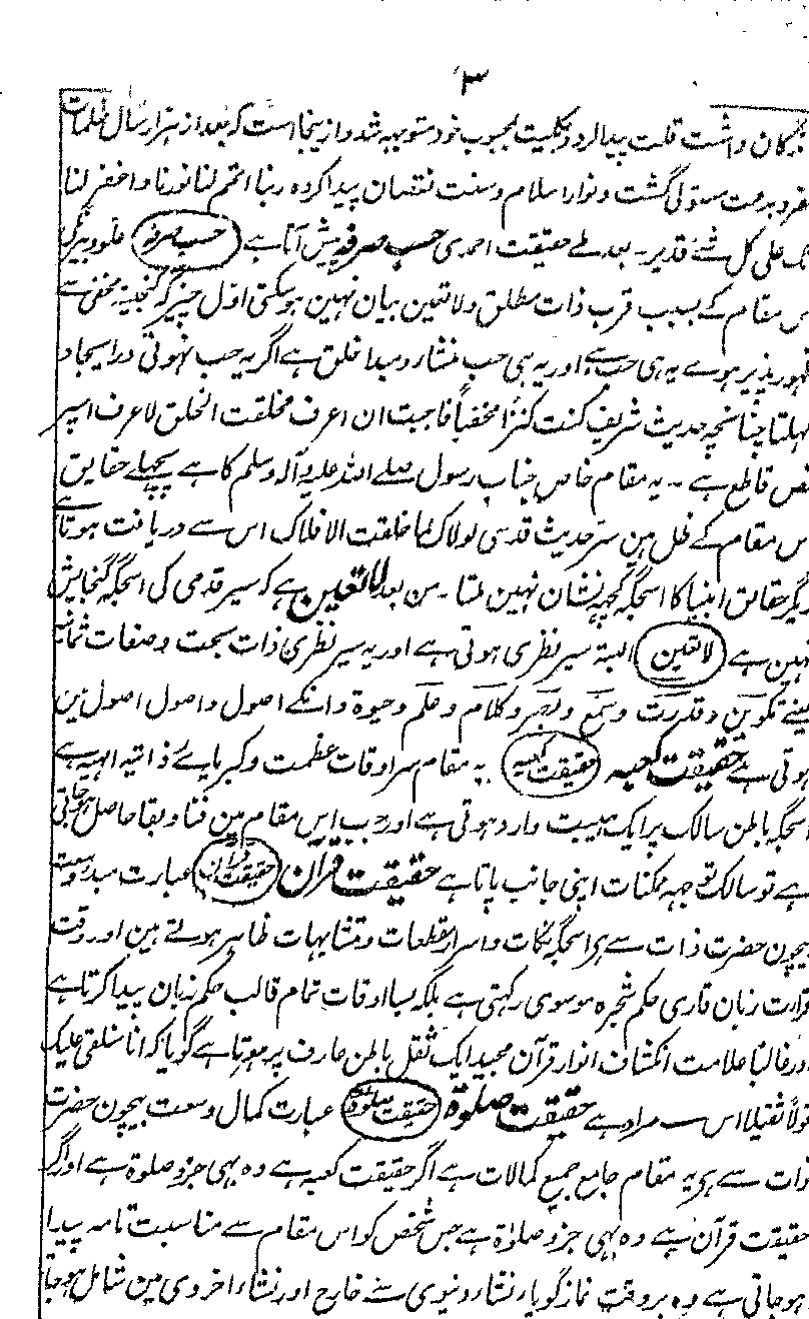 ۳
داشت قلت پیدا کرد و بکلیت بمحبوب خود متوجہ شد و ازینجا است کہ بعد از ہزار سال ظلمات
و بدعت مستولی گشت و نوار اسلام و سنت نقصان پیدا کردہ ربنا اتمم لنا نورنا و اغفر لنا
علی کل شئے قدیر۔ بعد طے حقیقت احمدی حب صرفہ پیش آتا ہے حب صرفہ علو و بیرنگی
س مقام کے بسبب قرب ذات مطلق و لاتعین بیان نہین ہو سکتی اول چیز کہ گنجینۂ مخفی سے
ظہور پذیر ہوے یہ ہی حب ہے اور یہ ہی حب منشاء و مبدا خلق ہے اگر یہ حب نہوتی در ایجاد
کہلتا چنانچہ حدیث شریف کنت کنزا مخفیاً فاحبت ان اعرف فخلقت الخلق لاعرف اسپر
نص قاطع ہے۔ یہ مقام خاص جناب رسول صلے اللہ علیہ وآلہ وسلم کا ہے پچھلے حقایق
س مقام کے ظل ہین سر حدیث قدسی لولاک لما خلقت الافلاک اس سے دریافت ہوتا ہے
دیگر حقایق انبیا کا اسجگہ کچھہ نشان نہین ملتا۔ من بعد لاتعین ہے کہ سیر قدمی کی اسجگہ گنجایش
نہین ہے لاتعین البتہ سیر نظری ہوتی ہے اور یہ سیر نظری ذات بحت و صفات ثمانیہ
یعنے تکوین و قدرت و سمع و بصر و کلام و علم و حیوۃ و انکے اصول و اصول اصول ین
ہوتی ہے حقیقت کعبہ حقیقت کعبہ یہ مقام سراوقات عظمت و کبریاے ذاتیہ الہیہ ہے
اسجگہ باطن سالک پر ایک ہیبت وارد ہوتی ہے اور جب اس مقام مین فنا و بقا حاصل ہو جاتی
ہے تو سالک توجہہ ممکنات اپنی جانب پاتا ہے حقیقت قرآن حقیقت قرآن عبارت مبدا وسعت
بیچون حضرت ذات سے ہی اسجگہ نکات و اسرار مقطعات و متشابہات ظاہر ہوتے ہین اور وقت
قرارت زبان قاری حکم شجرہ موسوی رکہتی ہے بلکہ بسا اوقات تمام قالب حکم زبان پیدا کرتا ہے
اور غالبًا علامت انکشاف انوار قرآن مجید ایک ثقل باطن عارف پر ہوتا ہے گویا کہ انا سنلقی علیک
قولاً ثقیلا اس سے مراد ہے حقیقت صلوۃ حقیقت صلوۃ عبارت کمال وسعت بیچون حضرت
ذات سے ہی یہ مقام جامع جمیع کمالات ہے اگر حقیقت کعبہ ہے وہ بھی جزو صلوۃ ہے اور اگر
حقیقت قرآن ہے وہ بھی جزو صلوٰۃ ہے جس شخص کو اس مقام سے مناسبت تامہ پیدا
ہو جاتی ہے وہ بر وقت نماز گویا نشاء دنیوی سے خارج اور نشاء اخروی مین شامل ہو جاتا